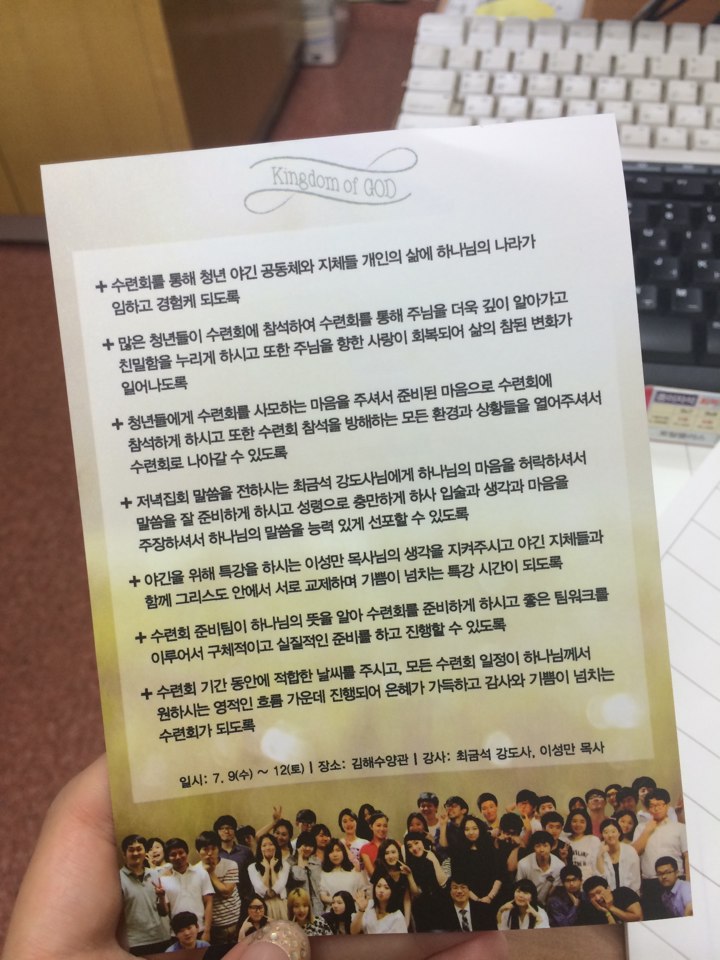 Kingdom of GOD
+ 수련회를 통해 청년 야긴 공동체와 지체들 개인의 삶에 하나님의 나라가
임하고 경험케 되도록
+ 많은 청년들이 수련회에 참석하여 수련회를 통해 주님을 더욱 깊이 알아가고
친밀함을 누리게 하시고 또한 주님을 향한 사랑이 회복되어 삶의 참된 변화가
일어나도록
+ 청년들에게 수련회를 사모하는 마음을 주셔서 준비된 마음으로 수련회에
참석하게 하시고 또한 수련회 참석을 방해하는 모든 환경과 상황들을 열어주셔서
수련회로 나아갈 수 있도록
+ 저녁집회 말씀을 전하시는 최금석 강도사님에게 하나님의 마음을 허락하셔서
말씀을 잘 준비하게 하시고 성령으로 충만하게 하사 입술과 생각과 마음을
주장하셔서 하나님의 말씀을 능력 있게 선포할 수 있도록
+ 야긴을 위해 특강을 하시는 이성만 목사님의 생각을 지켜주시고 야긴 지체들과
함께 그리스도 안에서 서로 교제하며 기쁨이 넘치는 특강 시간이 되도록
+ 수련회 준비팀이 하나님의 뜻을 알아 수련회를 준비하게 하시고 좋은 팀워크를
이루어서 구체적이고 실질적인 준비를 하고 진행할 수 있도록
+ 수련회 기간 동안에 적합한 날씨를 주시고, 모든 수련회 일정이 하나님께서
원하시는 영적인 흐름 가운데 진행되어 은혜가 가득하고 감사와 기쁨이 넘치는
수련회가 되도록
일시: 7. 9(수) ~ 12(토) | 장소: 김해수양관 | 강사: 최금석 강도사, 이성만 목사